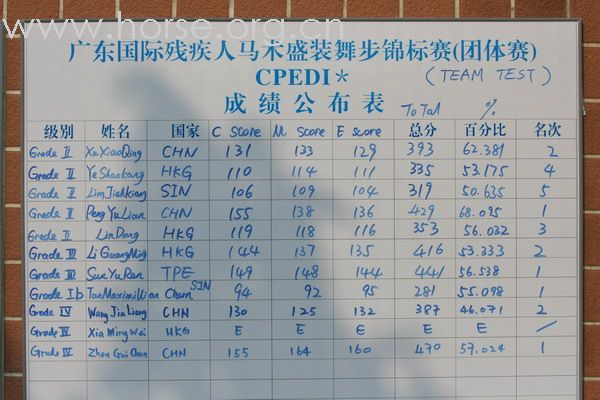 www.horse.org.cn
广东国际残疾人马术盛装舞步锦标赛(团体赛)
CPEDI* (TEAM TEST)
成绩公布表 ToTal %
级别 姓名 国家 C Score M Score E score 总分 百分比 名次
Grade II Xu XiaoQing CHN 131 133 129 393 62.381 2
Grade II Ye Shaokang HKG 110 114 111 335 53.175 4
Grade II Lim Jiahkiang SIN 106 109 104 319 50.635 5
Grade II Peng Yu Lian CHN 155 138 136 429 68.095 1
Grade II Lin Dang HKG 119 118 116 353 56.032 3
Grade III Li GuangMing HKG 144 137 135 416 53.333 2
Grade III Sun Yu Ran TPE 149 148 144 441 56.538 1
Grade Ib Tan Maximillian Chern SIN 94 92 95 281 55.098 1
Grade IV Wang Jia Liang CHN 130 125 132 387 46.071 2
Grade IV Xia Ming Wei HKG E E E E E /
Grade IV Zhen Gui Chan CHN 155 164 160 470 57.024 1